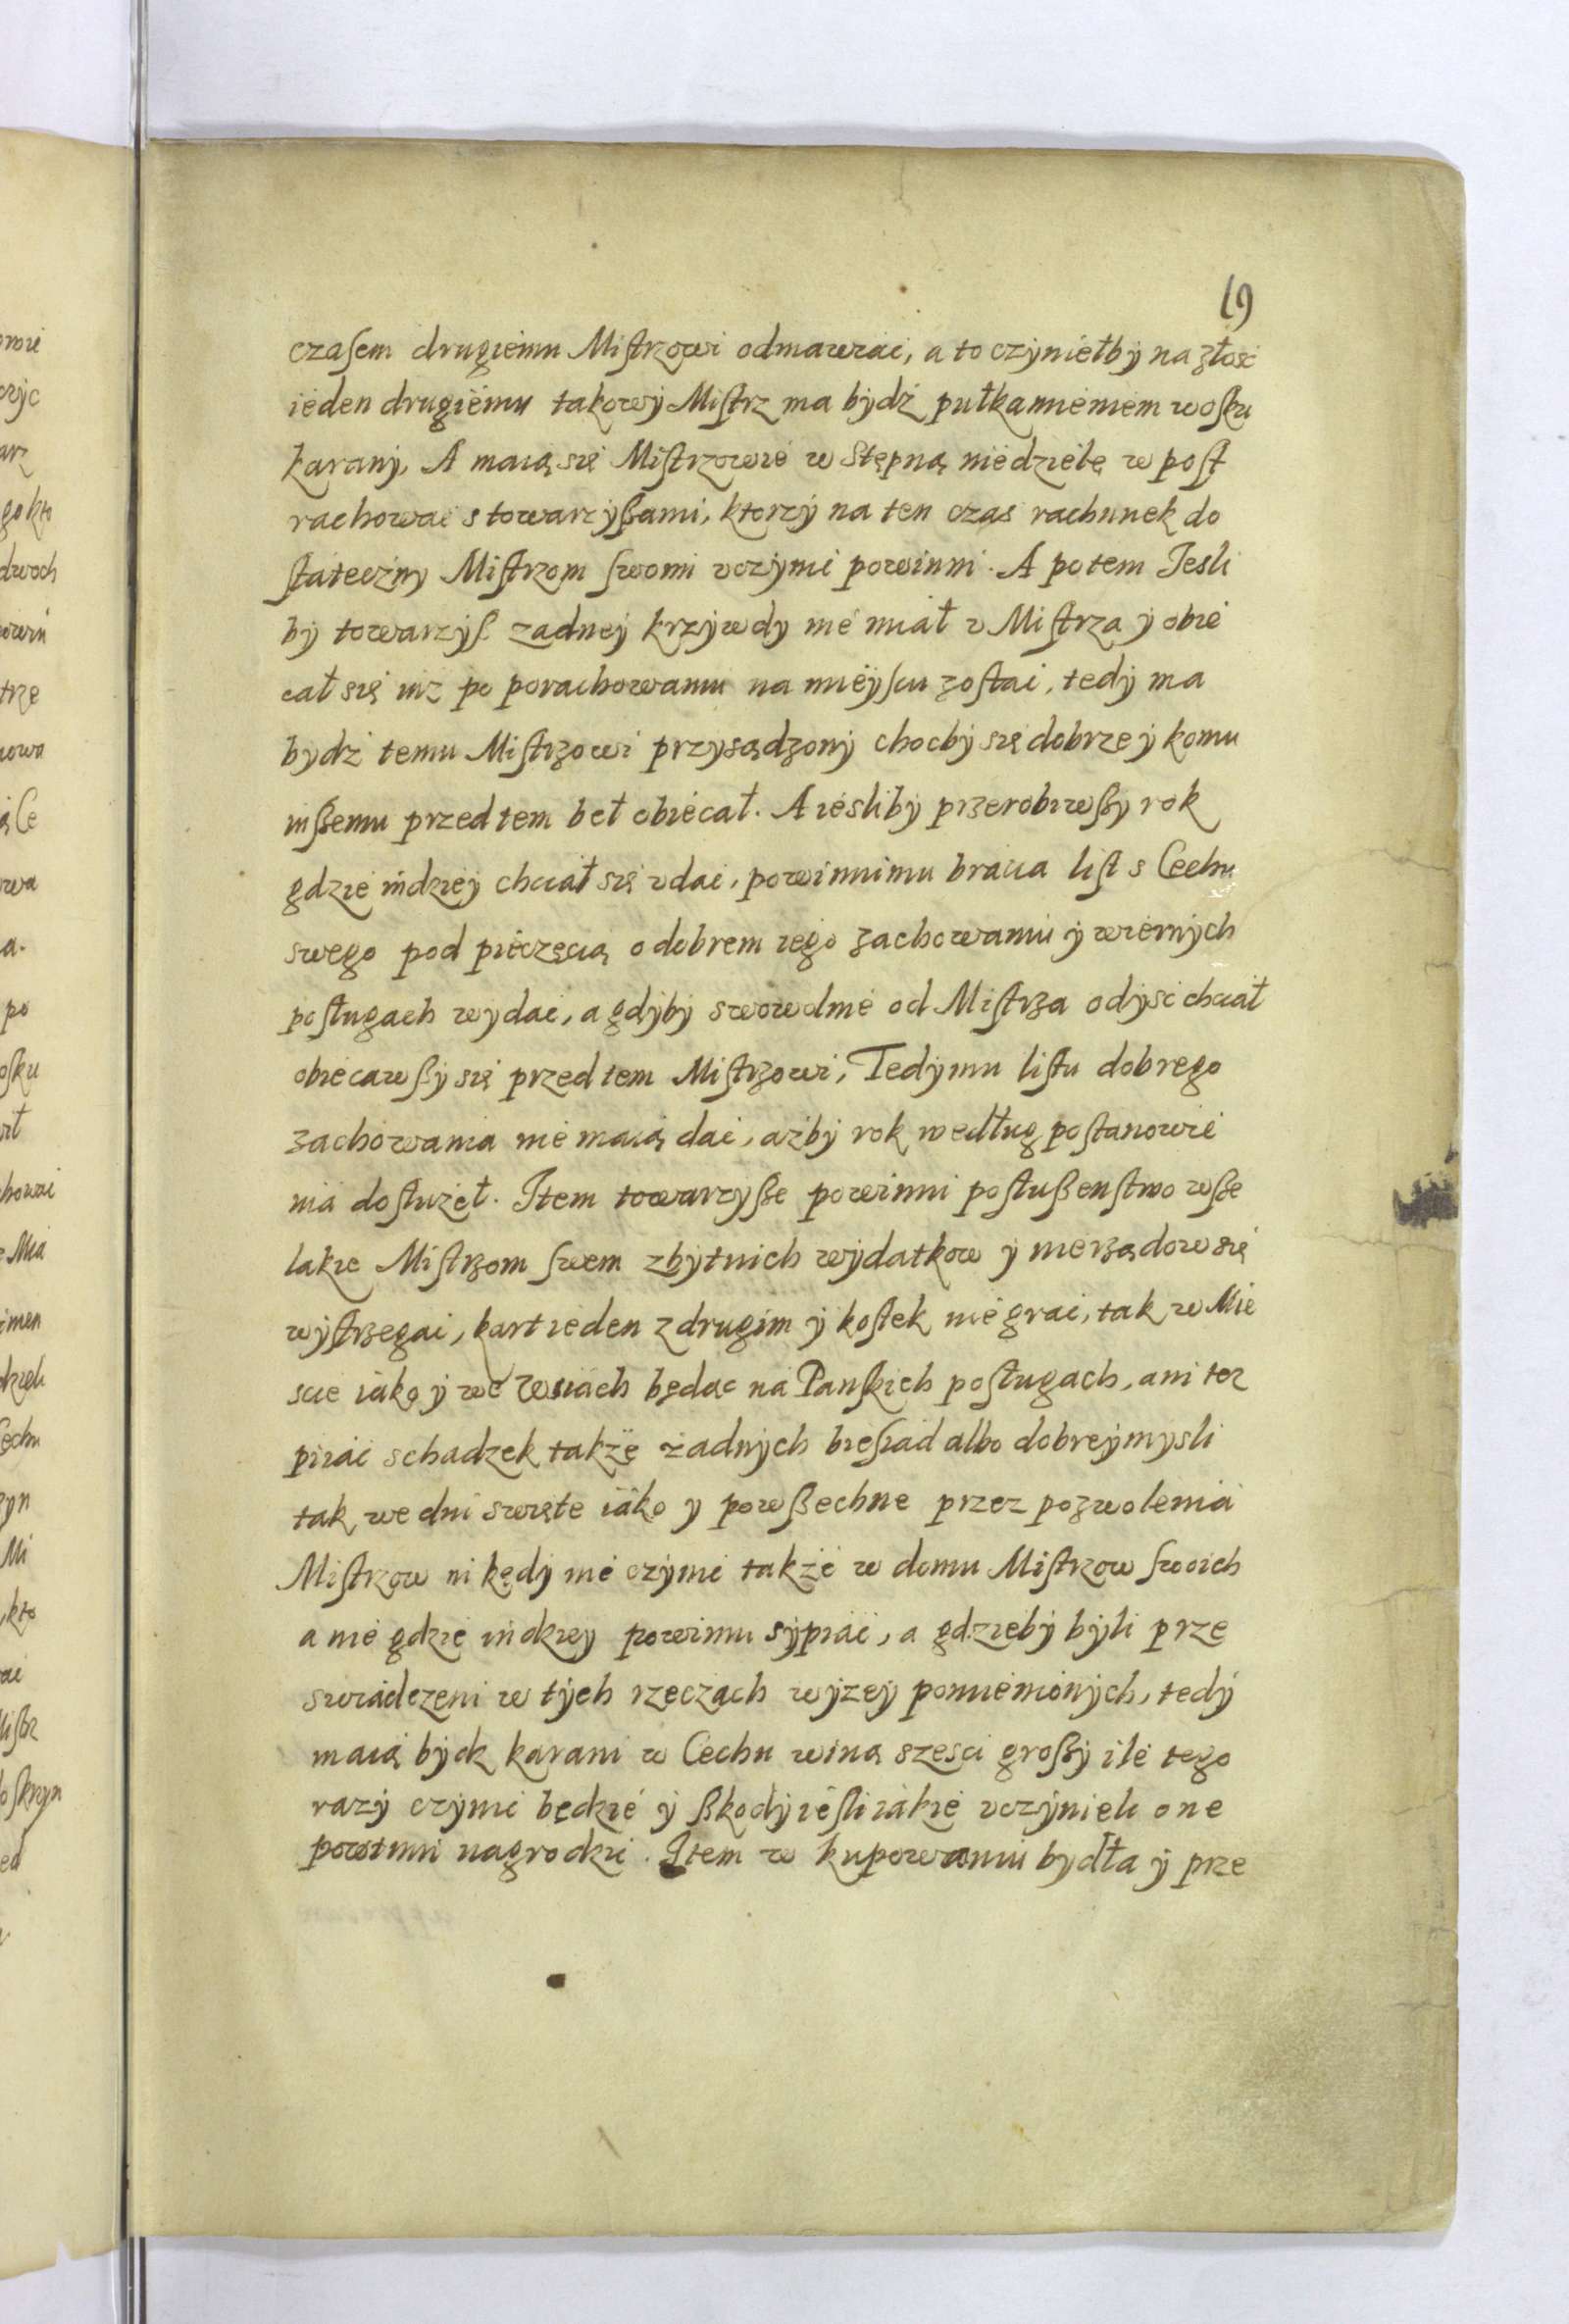 19
czasem drugiemu Mistrzowi odmawiać, a to czyniełby na złość
ieden drugiemu takowy Mistrz ma bydź pułkamieniem wosku
karany, A maią się Mistrzowie w Stępną niedzielę w post
rachować s towarzyßami, ktorzy na ten czas rachunek do
stateczny Mistrzom swoim vczynić powinni. A potem Iesli
by towarzyß zadney krzywdy nie miał v Mistrza y obie
cał się iuż po porachowaniu na mieyscu zostać, tedy ma
bydź temu Mistrzowi przysądzony chocby się dobrze y komu
inßemu przed tem beł obiecał. A iesliby przerobiwßy rok
gdzie indziey chciał się vdać, powinni mu bracia list s Cechu
swego pod pieczęcią o dobrem iego zachowaniu y wiernych
posługach wydać, a gdyby swowolnie od Mistrza odyść chciał
obiecawßy się przed tem Mistrzowi, Tedy mu listu dobrego
zachowania nie maią dać, ażby rok według postanowie
nia dosłużeł. Item towarzyße powinni posłußenstwo wße
lakie Mistrzom swem zbytnich wydatkow y nierządow się
wystrzegać, kart ieden z drugim y kostek nie grać, tak w Mie
scie iako y we Wsiach będąc na Panskich posługach, ani tez
piiać schadzek także żadnych biesiad albo dobrey mysli
tak we dni swięte iako y powßechne przez pozwolenia
Mistrzow ni kędy nie czynić także w domu Mistrzow swoich
a nie gdzie indziey powinni sypiać, a gdzieby byli prze
swiadczeni w tych rzeczach wyzey pomienionych, tedy
maią bydz karani w Cechu winą szesci großy ile tego
razy czynić będzie y ßkody iesli iakie vczynieli one
powinni nagrodzić. Item w kupowaniu bydła y prze